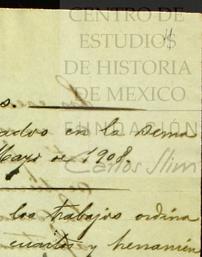 CENTRO DE
ESTUDIOS
DE HISTORIA
DE MEXICO
s.
FUNDACIÓN
ados en la sema
Mayo de 1908.
Carlos Slim
los trabajos ordina
cuarto y herramien